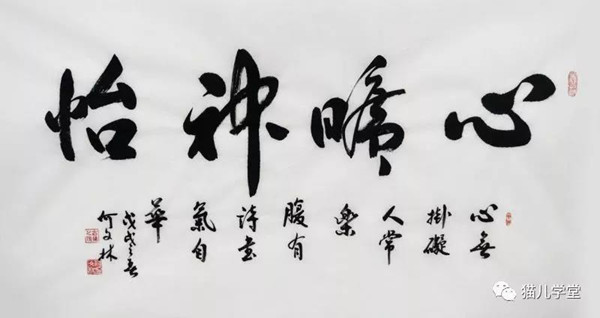 心曠神怡
心無
掛礙
人常
樂
腹有
詩書
氣自
華
戊戌之春
何文林
猫儿学堂